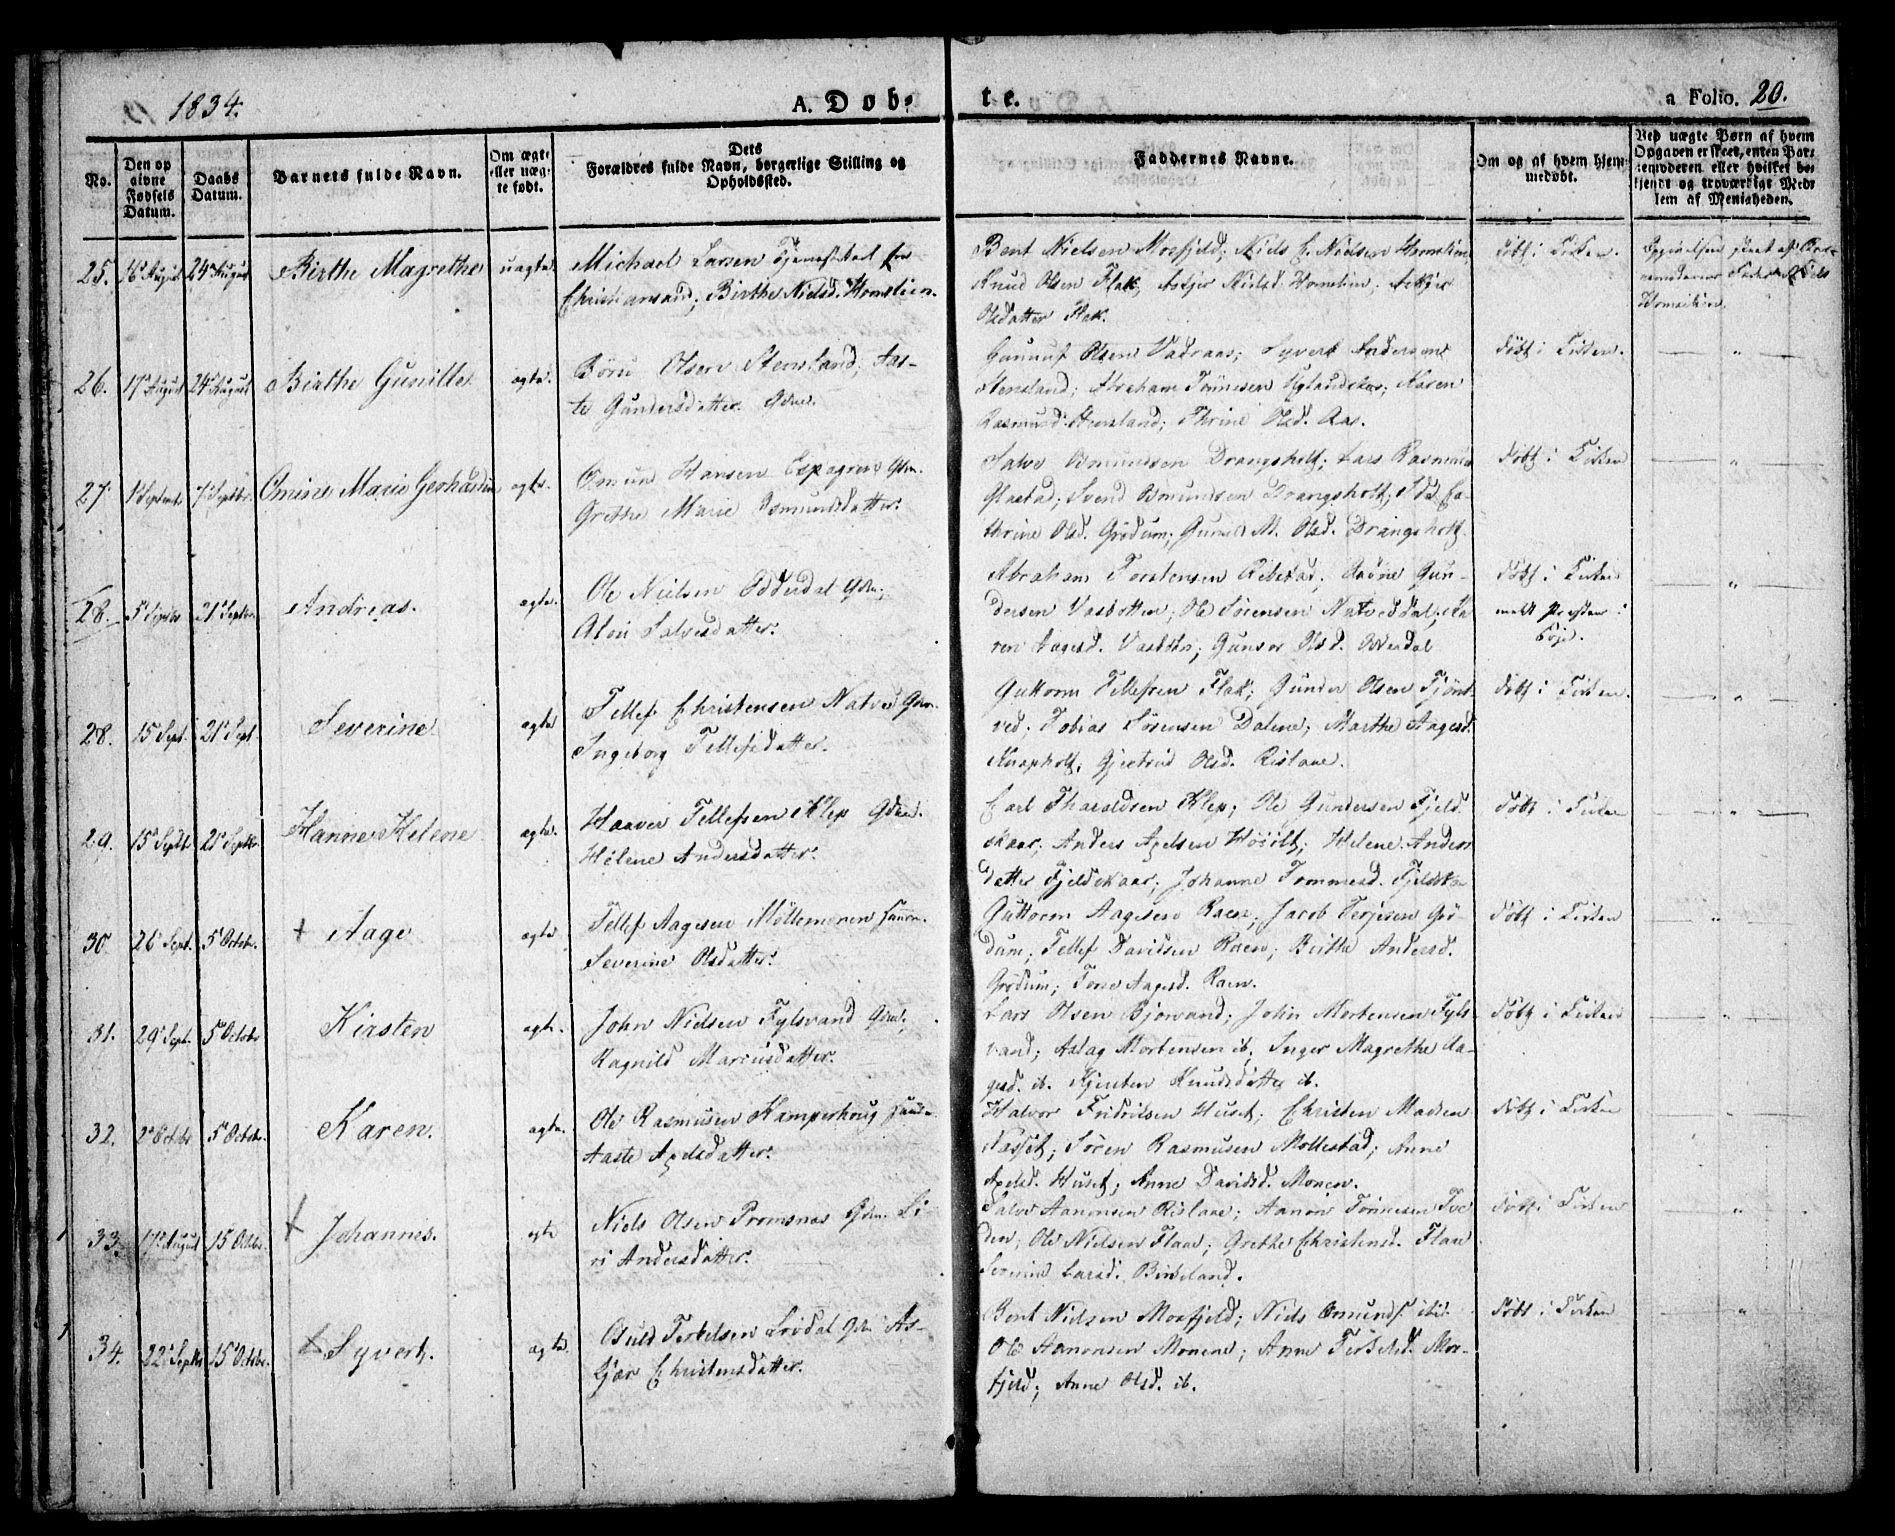 1834.
A. Døb-
te.
a Folio. 20.
No.
Den op
givne
Fødsels
Datum.
Daabs
Datum.
Barnets fulde Navn.
Om ægte
eller uæg-
te født.
Dets
Forældres fulde Navn, borgerlige Stilling og
Opholdssted.
Faddernes Navne.
Om og af hvem hjem-
medøbt.
Ved uægte Børn af hvem
Opgaven er skeet, enten Bar-
nemoderen eller hvilket be-
kjendt og troværdigt Med-
lem af Menigheden.
25. 16 August 24 August Birthe Magrethe uægte.
Michael Larsen
Christiansand; Birthe Nielsd. Homstien.
Bent Nielsen Mosfjeld; Niels
Knud Olsen Flak; Askjer Nielsd. Homstien; Askjer
Olsdatter Flak.
døbt i Kirken.
26. 17 August 24 August Birthe Gunille ægte.
Børu Olsen Stensland; Aas-
te Gundersdatter. Gdm.
Gunnuf Olsen Vadraas; Syvert Andersen
Stensland; Abraham Tønnesen; Karen
Rasmusd. Stensland; Thrine Olsd. Aas.
døbt i Kirken. — " —
27. 1 Septemb 7 Septbr. Omine Marie Gerhardine ægte.
Omund Hansen Espegren Gdm.
Grethe Marie Osmundsdatter.
Salve Osmundsen Drangsholt; Lars Rasmusen
Glastad; Svend Osmundsen Drangsholt; Ida Ca-
thrine Olsd. Grødum; M. Olsd. Drangsholt.
døbt i Kirken — " —
28. 5 21 Septbr. Andreas. ægte.
Ole Nielsen Odderdal Gdm;
Alou Salvesdatter.
Abraham Torstensen Ribestad; Gun-
dersen Vasbotten; Ole Sørensen; Ka-
ren Aagesd. Vasbotn; Gunvor Olsd.
døbt i Kirken — " —
28. 15 Sept. 21 Sept. Severine ægte
Tellef Christensen Natved Gdm.
Ingeborg Tellefsdatter.
Guttorm Tellefsen Flak; Gunder Olsen
ved; Tobias Sørensen Dalene; Marthe Aagesd.
Knapholt; Gjertrud Olsd. Rislaae.
døbt i Kirken. — " —
29. 15 Septbr. 21 Septbr. Hanne Helene ægte.
Haaver Tellefsen Klep Gdm.
Helene Andersdatter.
Carl Tharaldsen Klep; Ole Gundersen Fjeld-
skaar; Anders Axelsen; Helene Anders-
datter Fjeldskaar; Johanne Tommesd. Fjeldska
døbt i Kirken — " —
30. 26 Sept. 5 Octobr. + Aage ægte
Tellef Aagesen Møllemonen
Severine Olsdatter.
Guttorm Aagesen Raen; Jacob Terjesen Grø-
dum; Tellef Davidsen Raen; Birthe Andersd.
Grødum; Tone Aagesd. Raen.
døbt i Kirken — " —
31. 29 Sept. 5 Octobr Kirsten ægte.
John Nielsen Fylsvand Gdm;
Ragnild Marcusdatter.
Lars Olsen Bjorvand; John Mortensen Fyls-
vand; Aslag Mortensen ib; Inger Magrethe Aa-
gesd. ib. Kjersten Knudsdatter ib.
døbt i Kirken — " —
32. 2 Octobr 5 Octobr. Karen. ægte.
Ole Rasmusen Kamperhoug
Aaste Axelsdatter.
Halvor Fridrilsen Huset; Christen Madsen
Næsset; Søren Rasmusen Mollestad; Anne
Axelsd. Huset; Anne Davidsd. Monen.
døbt i Kirken — " —
33. 17 August 15 Octbr. + Johannes. ægte
Niels Olsen Promsnas Gdm. Si-
ri Andersdatter.
Salve Aanonsen Rislaae; Aanon Tønnesen Tve-
den; Ole Nielsen Flaae; Grethe Christensd. Flaae
Severine Larsd. Birkeland.
døbt i Kirken — " —
34. 22 Septbr 15 Octobr. + Syvert. ægte.
Osuld Terkelsen Lrødal Gdm As-
kjær Christensdatter.
Bent Nielsen Mosfjeld; Niels Omunds. ibid.
Ole Aanonsen Monene; Anne Terkelsd. Mos-
fjeld; Anne Olsd. ib.
døbt i Kirken — " —